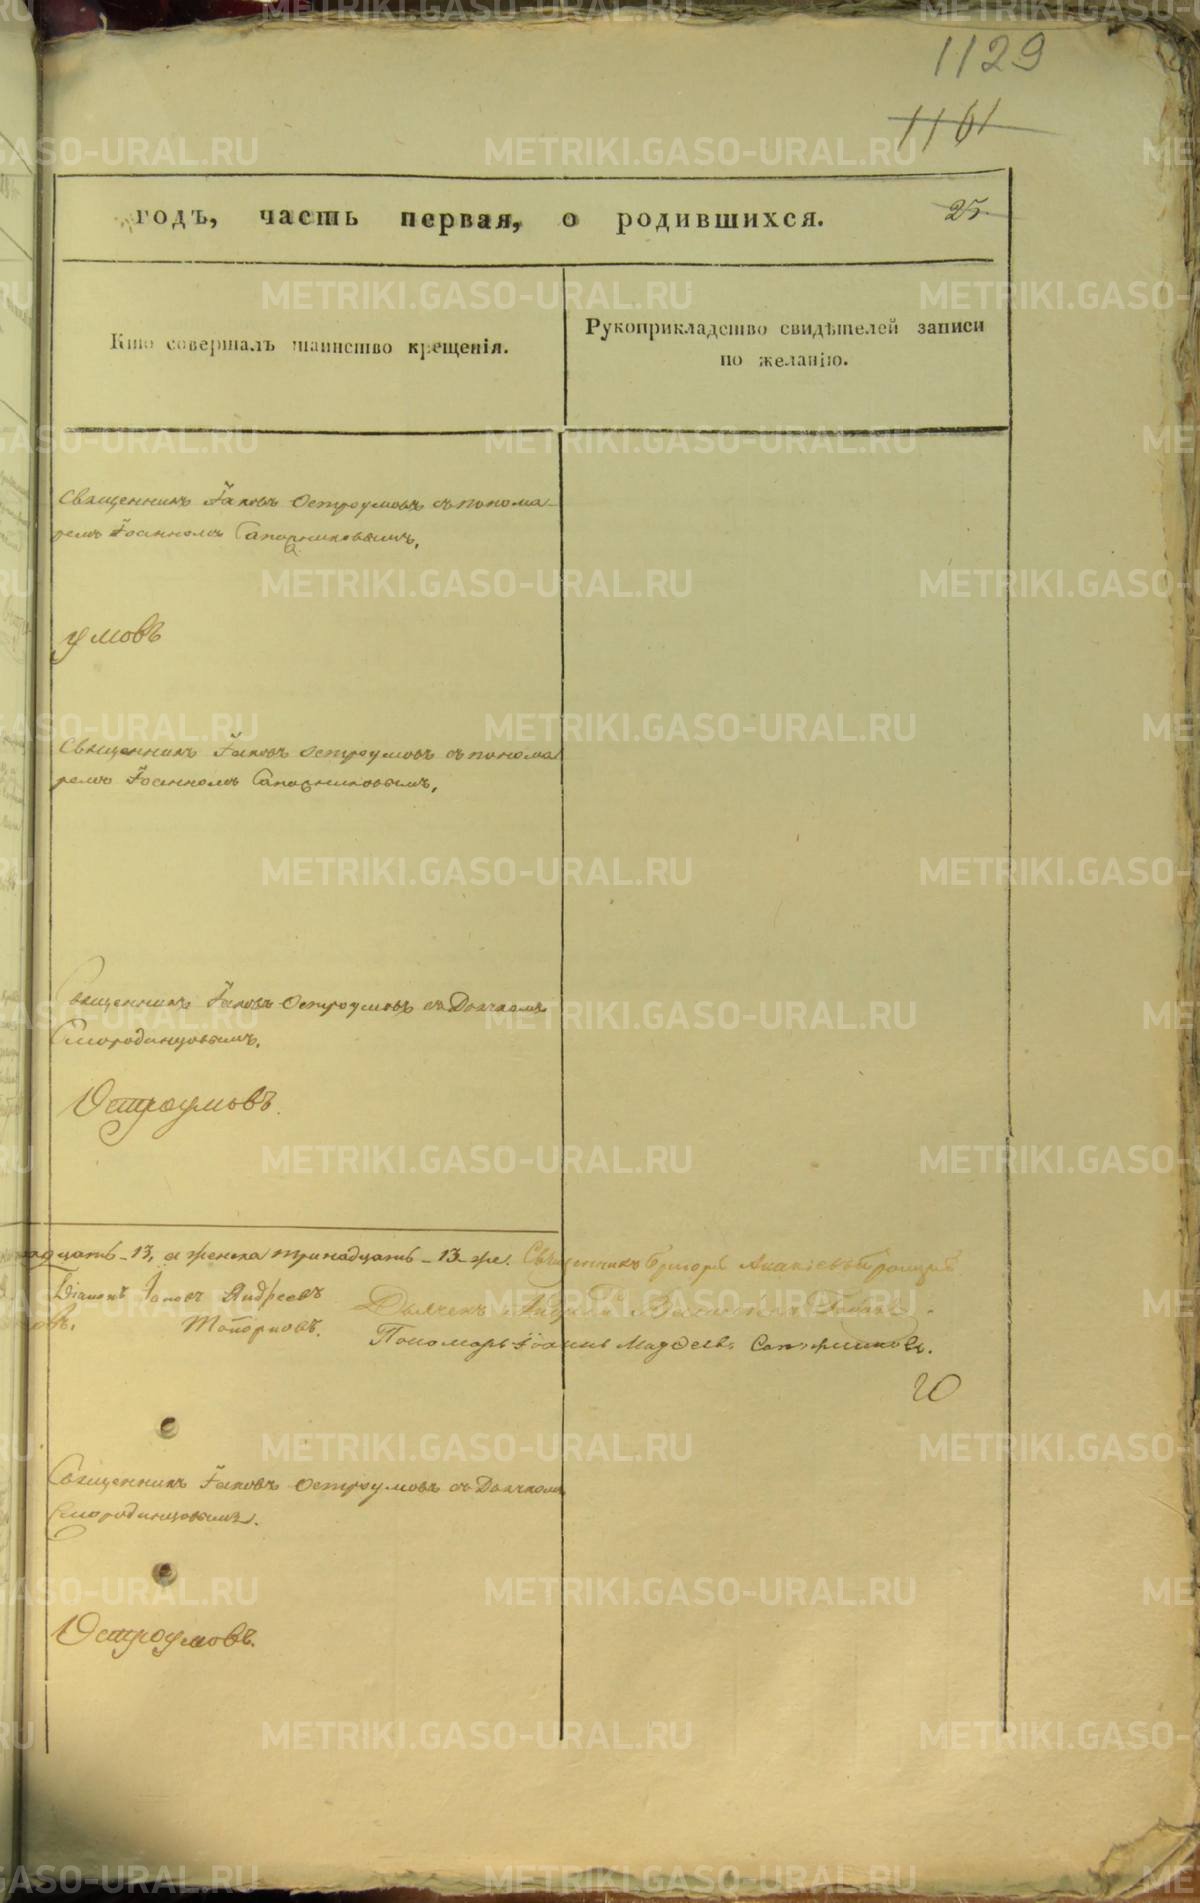 1129
1161
годъ, часть первая, о родившихся. 25.
Кто совершалъ таинство крещенія.
Рукоприкладство свидѣтелей записи
по желанію.
Священникъ Іаковъ Остроумовъ съ понома-
ремъ Іоанномъ Сапожниковымъ.
умовъ
Священникъ Іаковъ Остроумовъ съ понома
ремъ Іоанномъ Сапожниковымъ.
Священникъ Іаковъ Остроумовъ съ Дьячкомъ
Смородинцовымъ.
Остроумовъ.
надцать - 13, а женска тринадцать - 13 - же. Священникъ Григорій Троицкій
Діаконъ Іаковъ Андреевъ
Топорковъ.
Дьячекъ Андрей
Пономарь Іоаннъ Сапожниковъ.
20
Священникъ Іаковъ Остроумовъ съ Дьячкомъ
Смородинцовымъ.
Остроумовъ.
METRIKI.GASO-URAL.RU